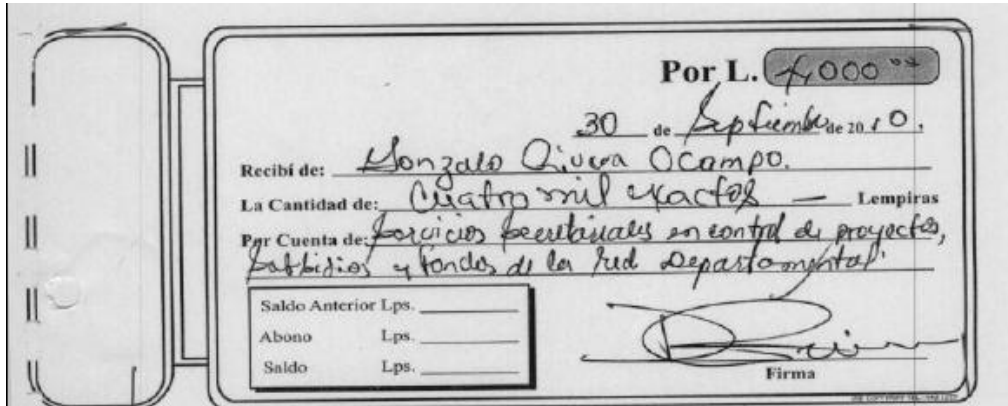 Por L. 4,000 00
30 de Septiembre de 2010.
Recibí de: Gonzalo Rivera Ocampo.
La Cantidad de: Cuatro mil exactos — Lempiras
Por Cuenta de: Servicios secretariales en control de proyectos,
subsidios y fondos de la red Departamental.
Saldo Anterior Lps.
Abono Lps.
Saldo Lps.
Firma